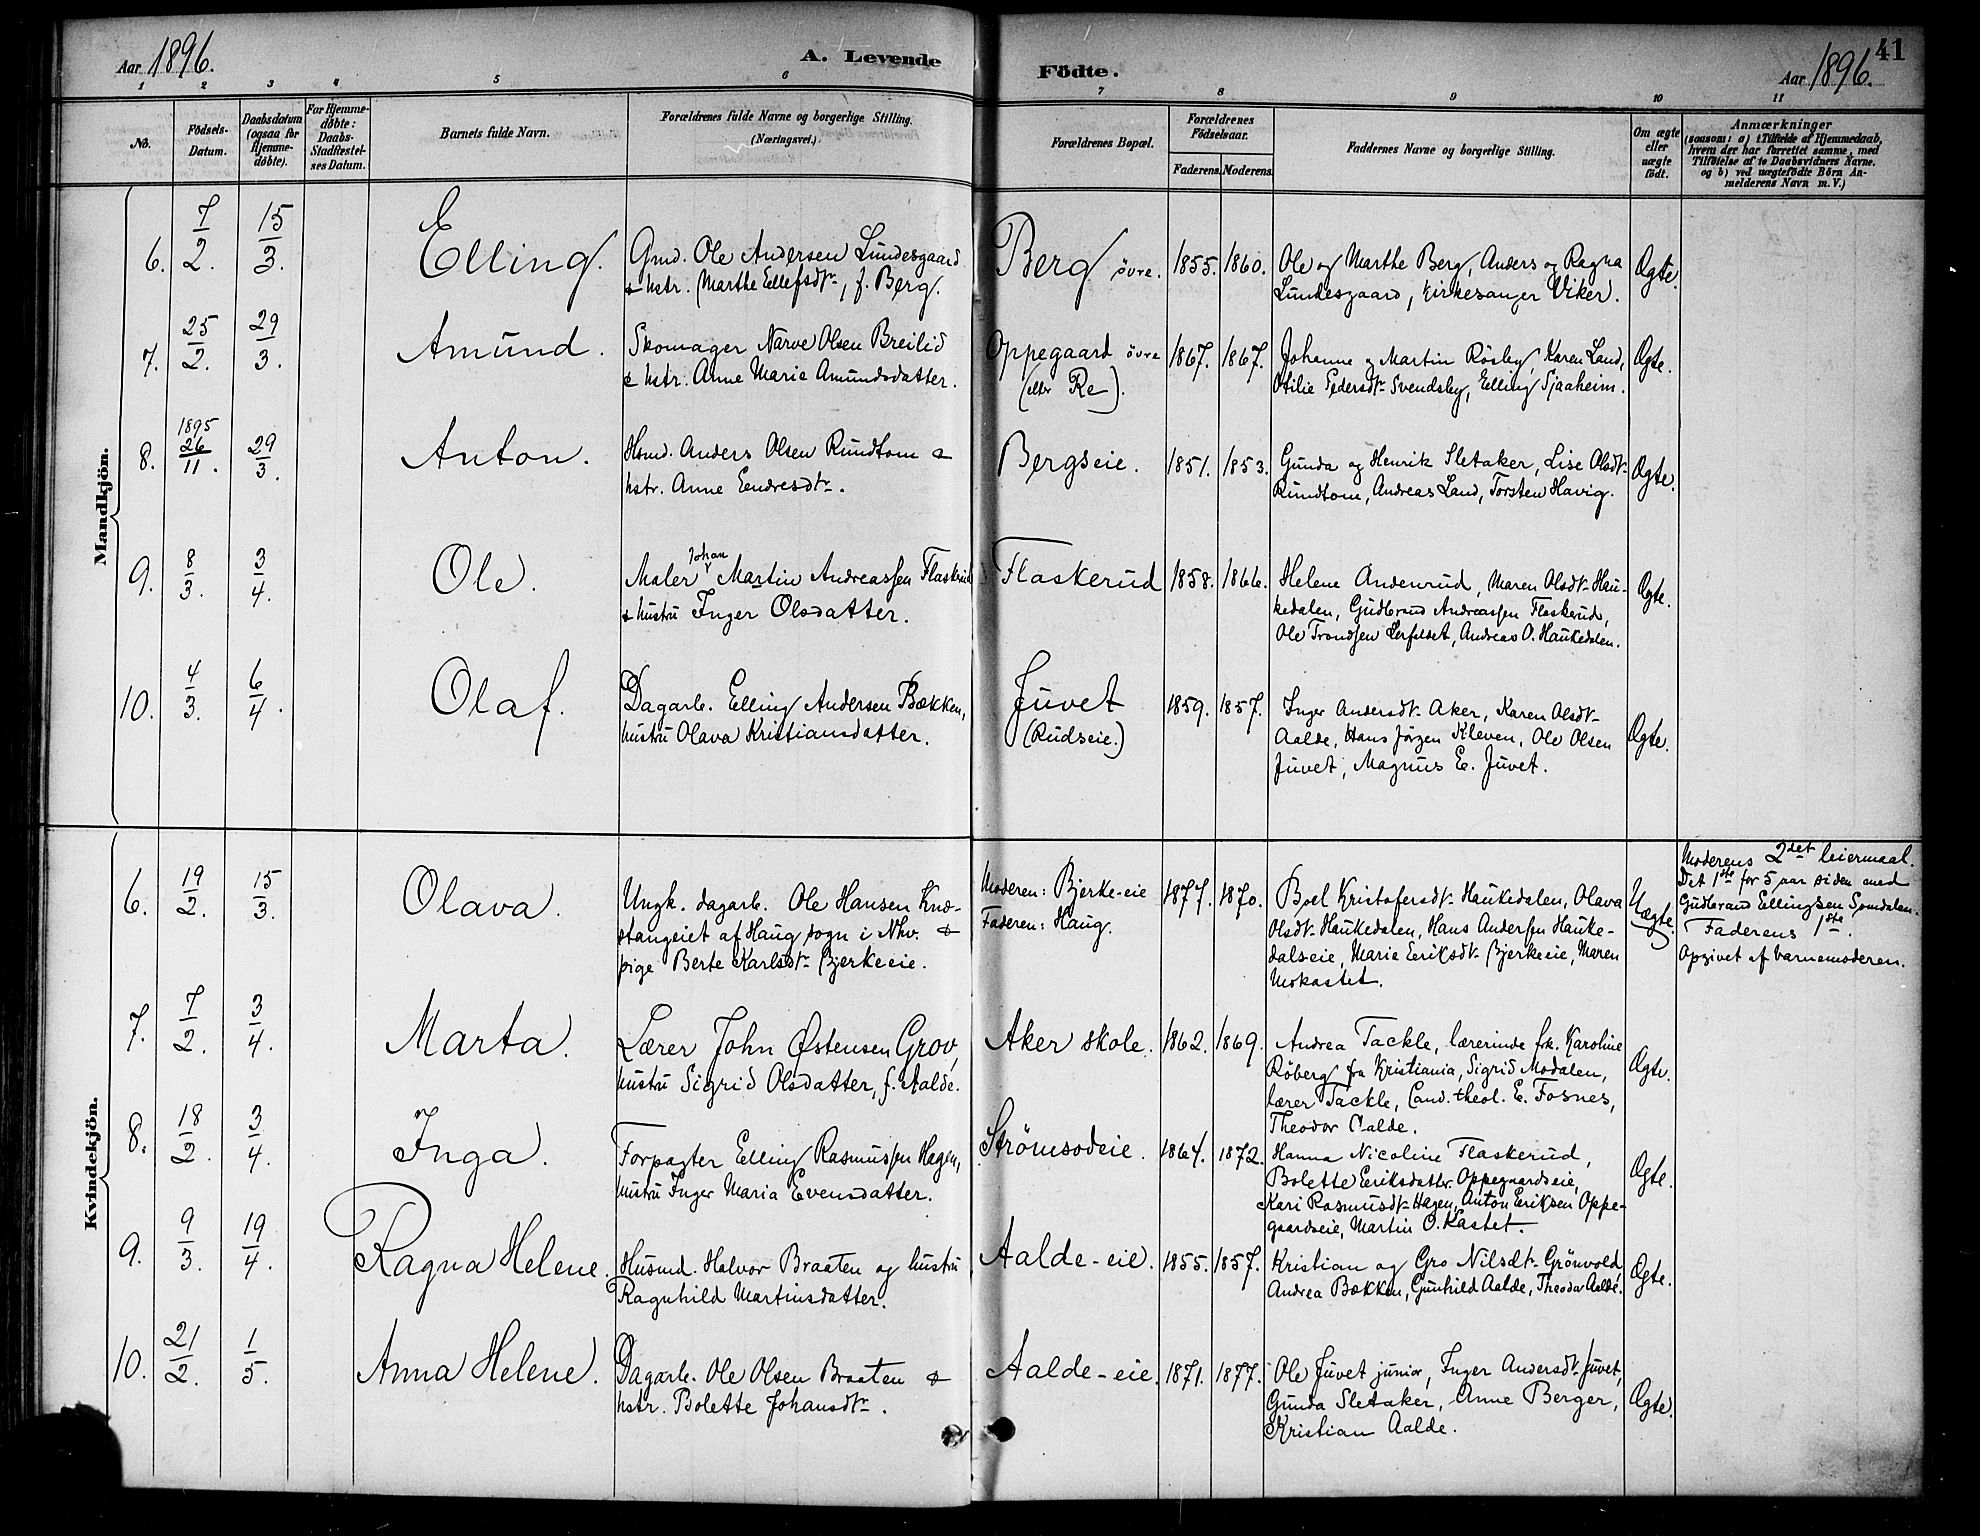 Aar 1896.
A. Levende
Födte.
Aar 1896.
41
1 2 3 4 5 6 7 8 9 10 11
No.
Födsels-
Datum.
Daabsdatum
(ogsaa for
Hjemme-
döbte).
For Hjemme-
döbte:
Daabs-
Stadfæstel-
ses Datum.
Barnets fulde Navn.
Forældrenes fulde Navne og borgerlige Stilling.
(Næringsvei.)
Forældrenes Bopæl.
Forældrenes
Födselsaar.
Faderens. Moderens.
Faddernes Navne og borgerlige Stilling.
Om ægte
eller
uægte
födt.
Anmærkninger
(saasom: a) i Tilfælde af Hjemmedaab,
hvem der har forrettet samme, med
Tilföielse af to Daabsvidners Navne.
og b) ved uægtefödte Börn An-
melderens Navn m. V.)
Mandkjön.
6. 7/2. 15/3. Elling. Gmd. Ole Andersen Lundesgaard
& hstr. Marthe Ellefsdtr, f. Berg.
Berg övre. 1855. 1860. Ole og Marthe Berg, Anders og Ragna
Lundesgaard, kirkesanger Viker. Ægte.
7. 25/2. 29/3. Amund. Skomager Narve Olsen Breilid
& hstr. Anne Marie Amundsdatter.
Oppegaard övre
(eller Re). 1867. 1867. Johanne og Martin Rösby, Karen Land,
Otilie Pedersdtr Svendsby, Elling Sjaaheim. Ægte.
8. 1895
26/11. 29/3. Anton. Hsmd. Anders Olsen Rundtom &
hstr. Anne Eendresdtr.
Bergseie. 1851. 1853. Gunda og Henrik Sletaker, Lise Olsdtr
Rundtom, Andreas Land, Torsten Havig. Ægte.
9. 8/3. 3/4. Ole. Maler Johan Martin Andreassen Flaskerud
& hustru Inger Olsdatter.
Flaskerud 1858. 1866. Helene Andenrud, Maren Olsdtr Hau-
kedalen, Gudbrand Andreassen Flaskerud,
Ole Trondsen Lerfaldet, Andreas O. Haukedalen. Ægte.
10. 4/3. 6/4. Olaf. Dagarb. Elling Andersen Bækken,
hustru Olava Kristiansdatter.
Juvet
(Rudseie.) 1859. 1857. Inger Andersdtr Aker, Karen Olsdtr
Aalde, Hans Jörgen Kleven, Ole Olsen
Juvet, Magnus E. Juvet. Ægte.
Kvindekjön.
6. 19/2. 15/3. Olava. Ungk. dagarb. Ole Hansen Knæ-
stangeiet af Haug sogn i Nhv. &
pige Berte Karlsdtr Bjerkeeie.
Moderen: Bjerke-eie
Faderen: Haug. 1877. 1870. Boel Kristofersdtr Haukedalen, Olava
Olsdtr Haukedalen, Hans Andersen Hauke-
dalseie, Marie Eeriksdtr Bjerkeeie, Maren
Mokastet. Uægte.
Moderens 2det leiermaal.
Det 1ste for 5 aar siden med
Gudbrand Ellingsen Somdalen.
Faderens 1ste.
Opgivet af barnemoderen.
7. 7/2. 3/4. Marta. Lærer John Østensen Grov,
hustru Sigrid Olsdatter, f. Aalde.
Aker skole. 1862. 1869. Andrea Tackle, lærerinde frk. Karoline
Röberg fra Kristiania, Sigrid Modalen,
lærer Tackle, Cand. theol. E. Fosnes,
Theodor Aalde. Ægte.
8. 18/2. 3/4. Inga. Forpagter Elling Rasmussen Hagen,
hustru Inger Maria Evensdatter.
Strömsodeie. 1864. 1872. Hanna Nicoline Flaskerud,
Bolette Eeriksdatter Oppegaardseie,
Kari Rasmusdtr Hagen, Anton Eeriksen Oppe-
gaardseie, Martin O. Kastet. Ægte.
9. 9/3. 19/4. Ragna Helene. Husmd. Halvor Braaten og hustru
Ragnhild Martinsdatter.
Aalde-eie. 1855. 1857. Kristian og Gro Nilsdtr Grönvold,
Andrea Bækken, Gunhild Aalde, Theodor Aalde. Ægte.
10. 21/2. 1/5. Anna Helene. Dagarb. Ole Olsen Braaten &
hstr. Bolette Johansdtr.
Aalde-eie. 1871. 1877. Ole Juvet junior, Inger Andersdtr Juvet,
Gunda Sletaker, Anne Berger,
Kristian Aalde. Ægte.